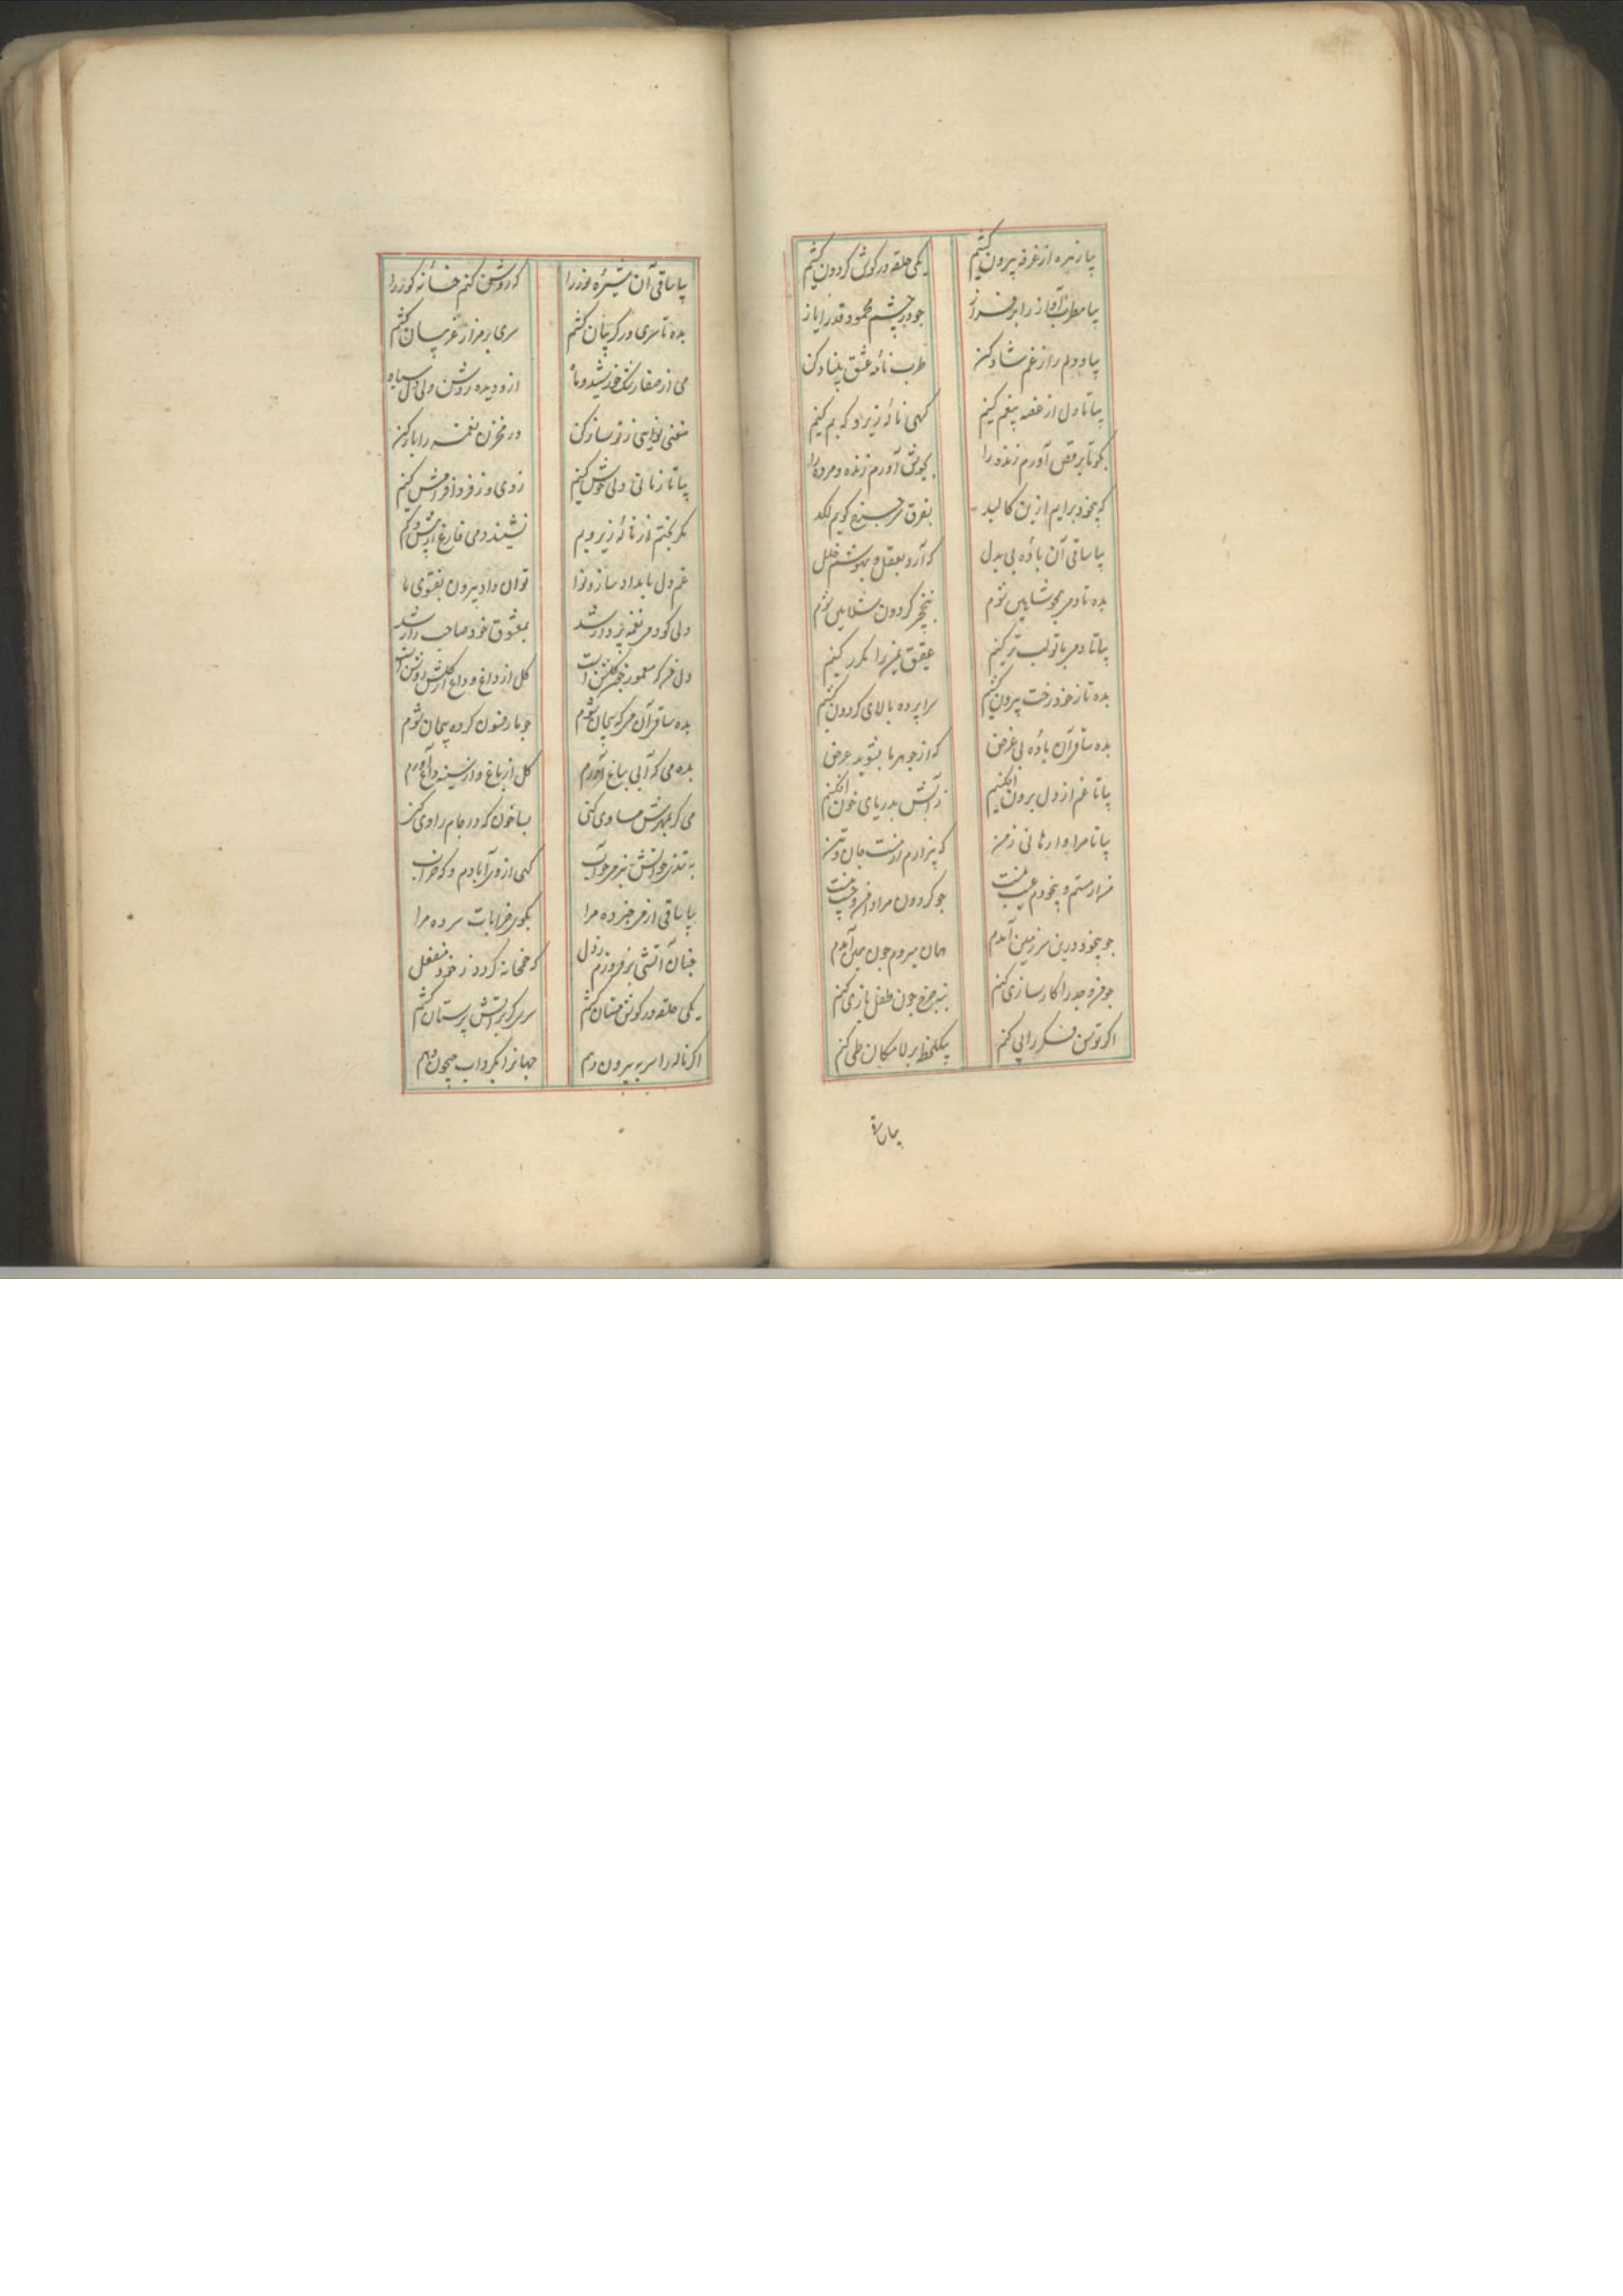 بیا زهره از غرفه بیرون کشیم یکی حلقه در گوش گردون کشیم
بیا مطرب آواز را بر فراز چو در چشم محمود قدر ایاز
بیا و دلم را ز غم شاد کن طرب نامه عشق بنیاد کن
بیا تا دل از غصه بیغم کنیم گهی ناله زیر و گه بم کنیم
بگو تا برقص آورم زنده را بگوش آورم زنده و مرده را
که بیخود برایم ازین کالبد بفرق سر چرخ کوبم لگد
بیا ساقی آن باده بی بدل که آرد بعقل و بهوشم خلل
بده تا دمی همچو شاهین شوم بنخچیر گردون شلایین شوم
بیا تا دمی با تو لب تر کنیم عقیق یمن را مکرر کنیم
بده تا ز خود رخت بیرون کشیم سراپرده بالای گردون کشیم
بده ساقی آن باده بی غرض که از جوهر ما بشوید عرض
بیا تا غم از دل برون افکنیم ز آتش بدریای خون افکنیم
بیا تا مرا وا رهانی ز من که بیزارم از هست جان و تن
من ار مستم و بیخودم عیب نیست چو گردون مراد
چو بیخود درین سرزمین آمدم همان میروم چون چنین آمدم
چو من وجد را کارسازی کنم بنه چرخ چون طفل بازی کنم
اگر توسن فکر را پی کنم بیکلحظه بر لامکان طی کنم
بیا ساقی
بیا ساقی آن شیره نور را که روشن کنم خانه گور را
بده تا سری در گریبان کشم سری بر مزار غریبان کشم
می از صفا رنگ خورشید و ماه ازو دیده روشن ولی دل سیاه
مغنی نوایی ز نو ساز کن در مخزن نغمه را باز کن
بیا تا زمانی دلی خوش کنیم ز دی و ز فردا فرامش کنیم
مگر بختم از ناله زیر و بم نشیند دمی فارغ از بیش و کم
غم دل بامداد ساز و نوا توان داد بیرون بفتوی ما
دلی کو دمی نغمه پرداز شد بمعشوق خود صاحب راز شد
دل گلشن است گل از داغ و داغ از گلش روشن است
بده ساقی آن می که بیجان شوم چو با رفتن کرده پیمان شوم
بده می که آبی بباغ آورم گل از باغ و از سینه داغ آورم
می کر بهرش مساوی کنی بسا خون که در جام راوی کنی
به تندی چو آتش بنرمی چو آب گهی از وی آبادم و گه خراب
بیا ساقی از می خبر ده مرا بکوی خرابات سر ده مرا
چنان آتشی بر فروزم ز دل که خمخانه گردد ز خود منفعل
یکی حلقه در گوش مستان کشم سری گو بر آتش پرستان کشم
اگر ناله را سر به بیرون دهم جهانرا بگرداب جیحون دهم